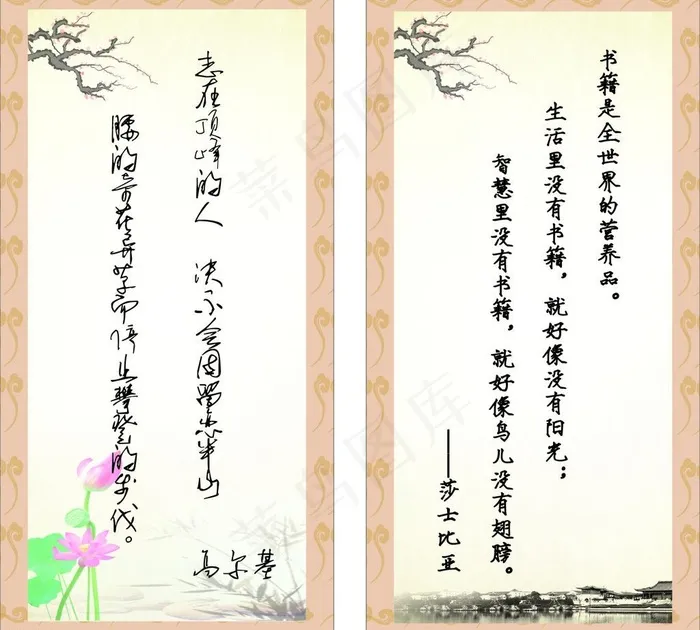 志在顶峰的人 决不会因留恋半山
腰的奇花异草而停止攀登的步伐。
高尔基
书籍是全世界的营养品。
生活里没有书籍，就好像没有阳光；
智慧里没有书籍，就好像鸟儿没有翅膀。
——莎士比亚
菜鸟图库
菜鸟图库